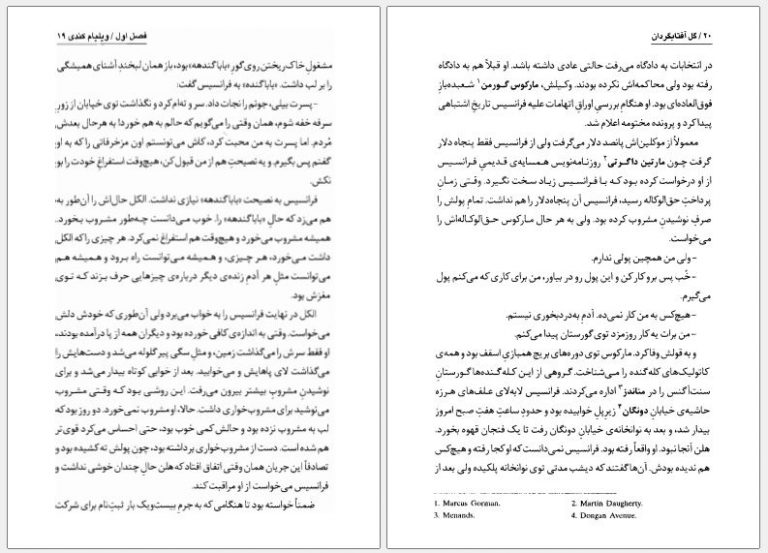 فصل اول / ویلیام کندی ۱۹
مشغولِ خاک‌ریختن روی گورِ «باباگندهه» بود، باز همان لبخندِ آشنای همیشگی
را بر لب داشت. «باباگنده» به فرانسیس گفت:
– پسرت بیلی، جونم را نجات داد. سر و ته‌ام کرد و نگذاشت توی خیابان از زورِ
سرفه خفه شوم، همان وقتی را می‌گویم که حالم به هم خورد! به هرحال بعدش
مُردم. اما پسرت به من محبت کرد، کاش می‌تونستم اون مزخرفاتی را که به او
گفتم پس بگیرم. و یه نصیحت‌هم از من قبول کن، هیچ‌وقت استفراغِ خودت را بو
نکش.
فرانسیس به نصیحت «باباگندهه» نیازی نداشت. الکل حال‌اش را آن‌طور به
هم می‌زد که حالِ «باباگندهه» را. خوب می‌دانست چه‌طور مشروب بخورد.
همیشه مشروب می‌خورد و هیچ‌وقت هم استفراغ نمی‌کرد. هر چیزی را که الکل
داشت می‌خورد، هر چیزی، و همیشه می‌توانست راه برود و همیشه هم
می‌توانست مثلِ هر آدمِ زنده‌ی دیگر درباره‌ی چیزهایی حرف بزند که توی
مغزش بود.
الکل در نهایت فرانسیس را به خواب می‌برد ولی آن‌طوری که خودش دلش
می‌خواست. وقتی به اندازه‌ی کافی خورده بود و دیگران همه از پا درآمده بودند،
او فقط سرش را می‌گذاشت زمین، و مثلِ سگی پیر گلوله می‌شد و دست‌هایش را
می‌گذاشت لای پاهایش و می‌خوابید. بعد از خوابی کوتاه بیدار می‌شد و برای
نوشیدنِ مشروبِ بیشتر بیرون می‌رفت. این روشی بود که وقتی مشروب
می‌نوشید برای مشروب‌خواری داشت. حالا، او مشروب نمی‌خورد. دو روز بود که
لب به مشروب نزده بود و حالش کمی خوب بود، حتی احساس می‌کرد قوی‌تر
هم شده است. دست از مشروب‌خواری برداشته بود، چون پولش ته کشیده بود و
تصادفاً این جریان همان وقتی اتفاق افتاد که هلن حالِ چندان خوشی نداشت و
فرانسیس می‌خواست از او مراقبت کند.
ضمناً خواسته بود تا هنگامی که به جرمِ بیست‌ویک بار ثبتِ‌نام برای شرکت
۲۰ / گل آفتابگردان
در انتخابات به دادگاه می‌رفت حالتی عادی داشته باشد. او قبلاً هم به دادگاه
رفته بود ولی محاکمه‌اش نکرده بودند. وکیلش، مارکوس گورمن۱ شعبده‌باز
فوق‌العاده‌ای بود. او هنگام بررسیِ اوراقِ اتهامات علیه فرانسیس تاریخِ اشتباهی
پیدا کرد و پرونده مختومه اعلام شد.
معمولاً از موکلین‌اش پانصد دلار می‌گرفت ولی از فرانسیس فقط پنجاه دلار
گرفت چون مارتین داگرتی۲ روزنامه‌نویس همسایه‌ی قدیمیِ فرانسیس
از او درخواست کرده بود که با فرانسیس زیاد سخت نگیرد. وقتی زمانِ
پرداختِ حق‌الوکاله رسید، فرانسیس آن پنجاه‌دلار را هم نداشت. تمامِ پولش را
صرفِ نوشیدنِ مشروب کرده بود. ولی به هر حال مارکوس حق‌الوکاله‌اش را
می‌خواست.
– ولی من همچین پولی ندارم.
– خُب پس برو کار کن و این پول رو در بیاور، من برای کاری که می‌کنم پول
می‌گیرم.
– هیچ‌کس به من کار نمی‌ده. آدمِ به‌دردبخوری نیستم.
– من برات یه کار روزمزد توی گورستان پیدا می‌کنم.
و به قولش وفا کرد. مارکوس توی دوره‌های بریج همبازیِ اسقف بود و همه‌ی
کاتولیک‌های کله‌گنده را می‌شناخت. گروهی از این کله‌گنده‌ها گورستانِ
سنت‌اَگنس را در مناندز۳ اداره می‌کردند. فرانسیس لابه‌لای علف‌های هرزه
حاشیه‌ی خیابانِ دونگان۴ زیرِ پل خوابیده بود و حدودِ ساعتِ هفتِ صبح امروز
بیدار شد، و بعد به نوانخانه‌ی خیابانِ دونگان رفت تا یک فنجان قهوه بخورد.
هلن آنجا نبود. او واقعاً رفته بود. فرانسیس نمی‌دانست که او کجا رفته و هیچ‌کس
هم ندیده بودش. آن‌ها گفتند که دیشب مدتی توی نوانخانه پلکیده ولی بعد از
1. Marcus Gorman. 2. Martin Daugherty.
3. Menands. 4. Dongan Avenue.